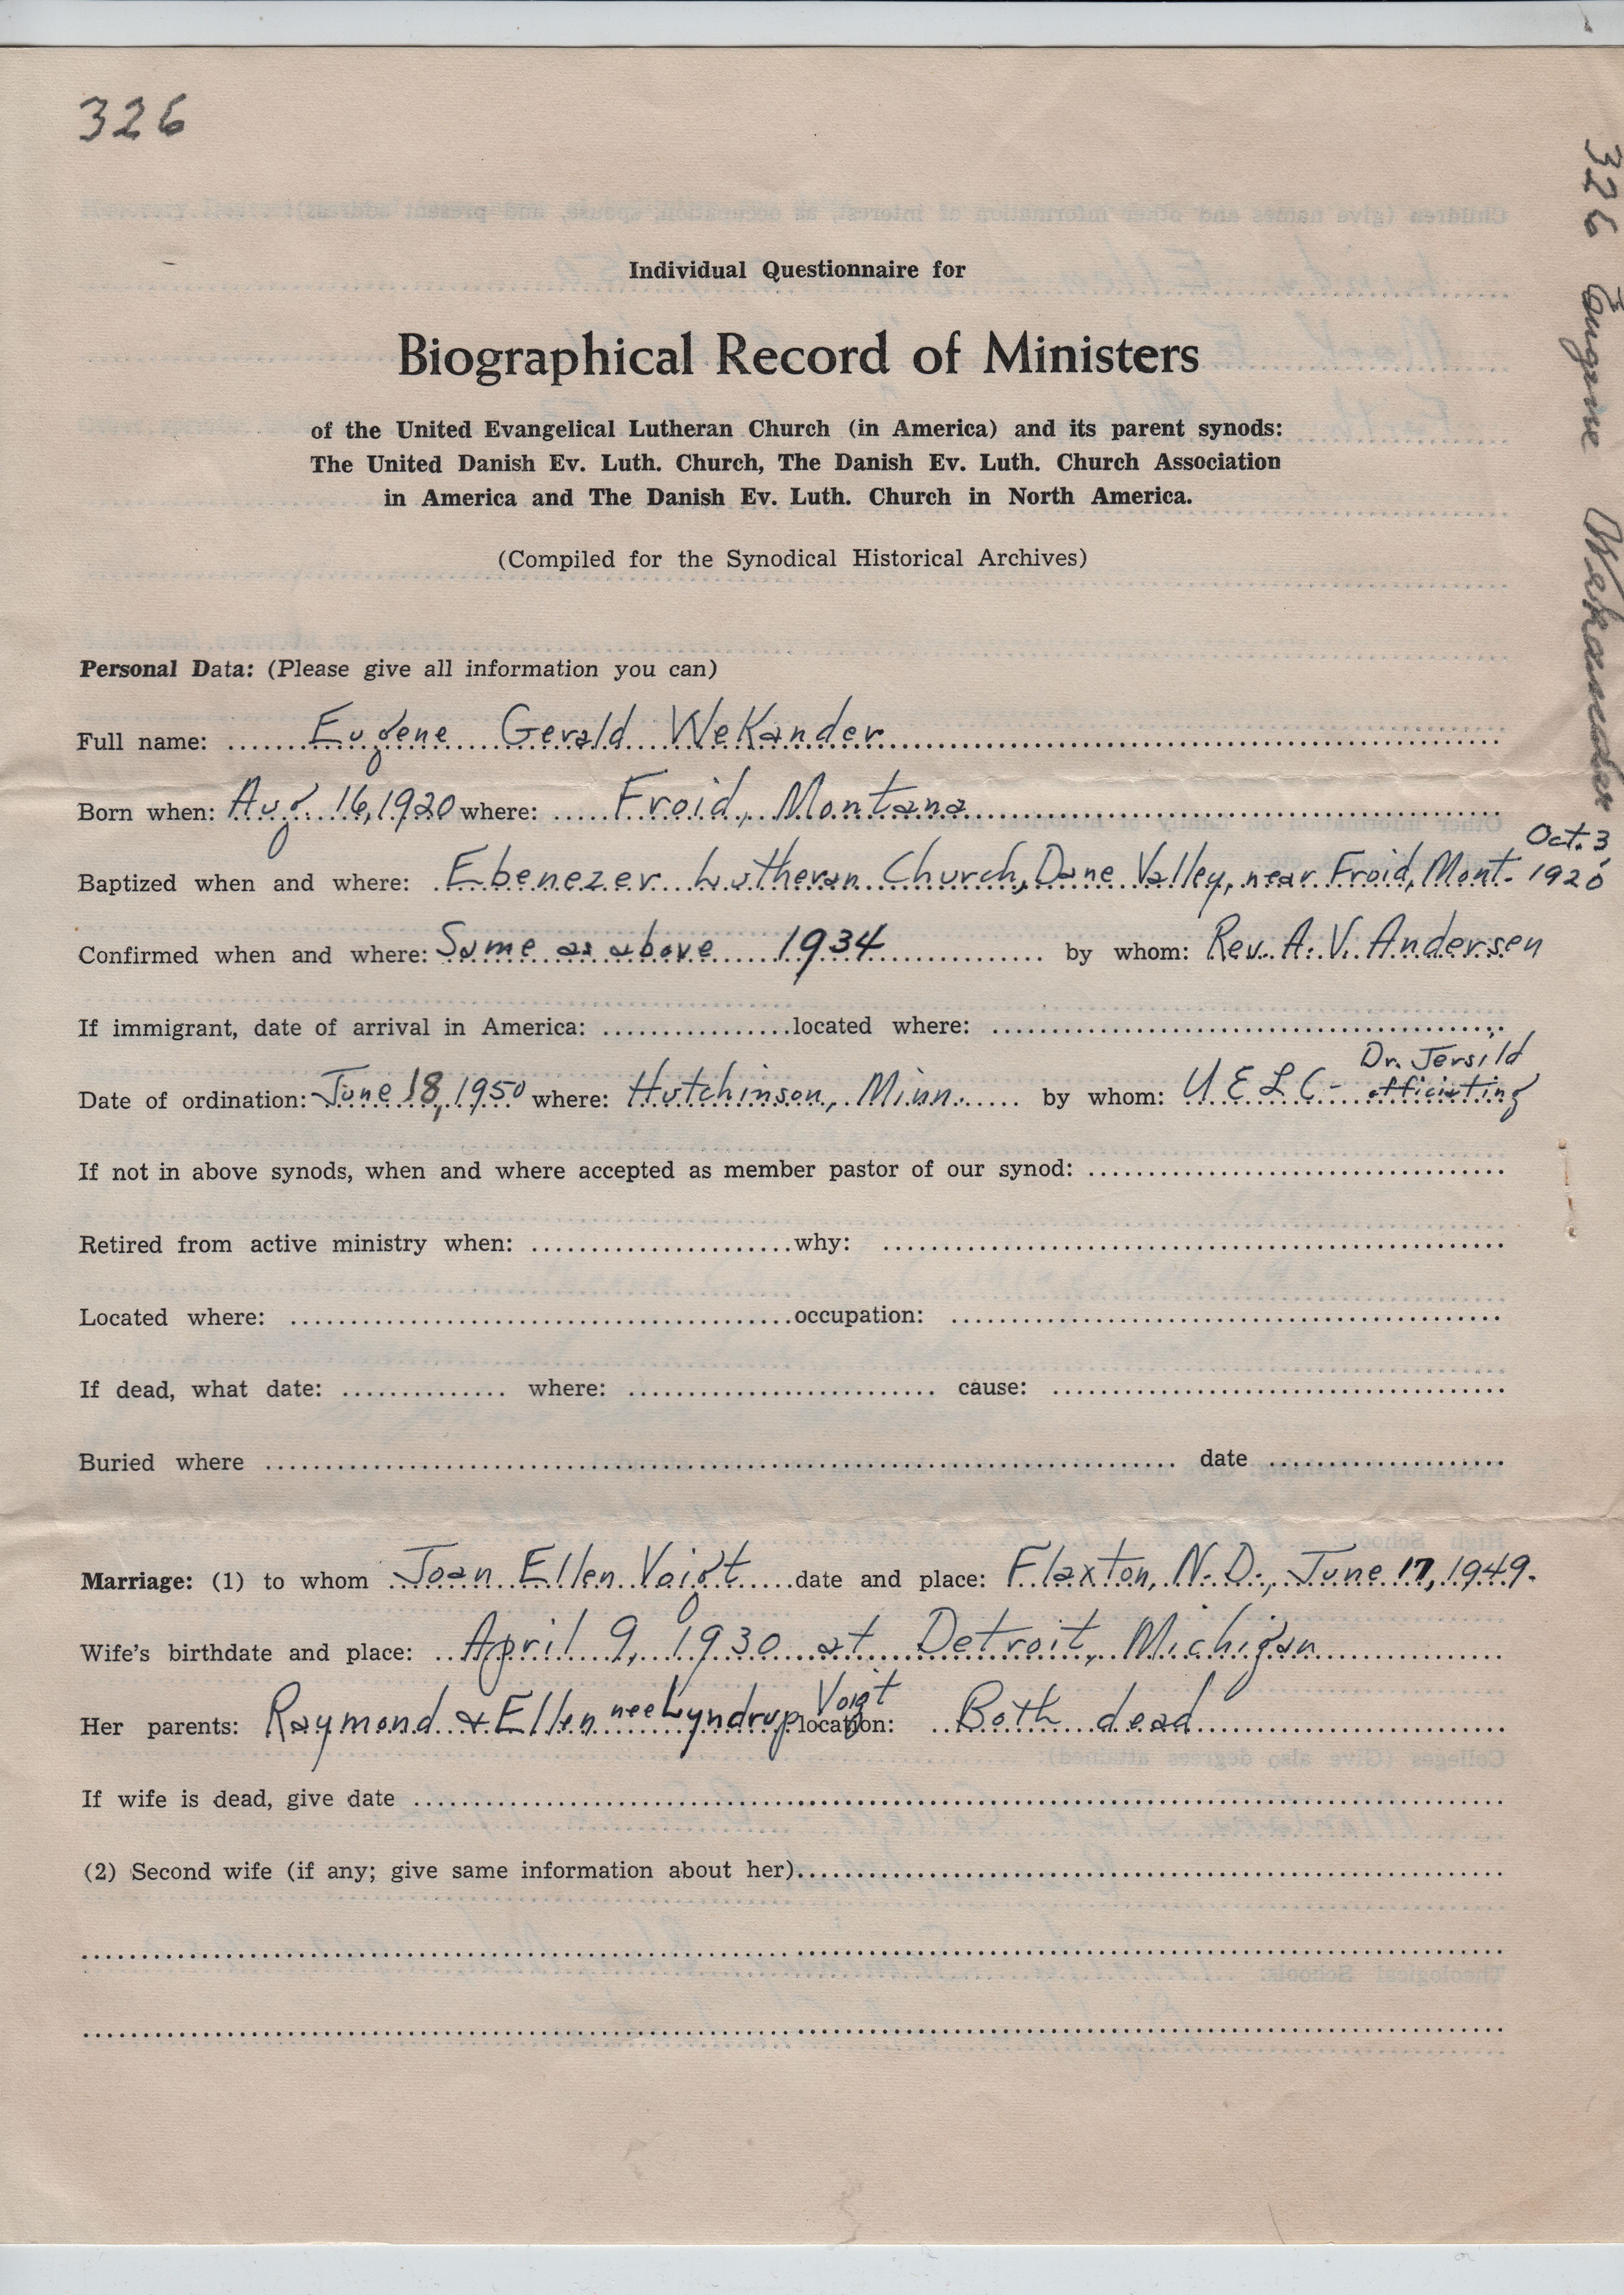 326
Individual Questionnaire for
Biographical Record of Ministers
of the United Evangelical Lutheran Church (in America) and its parent synods:
The United Danish Ev. Luth. Church, The Danish Ev. Luth. Church Association
in America and The Danish Ev. Luth. Church in North America.
(Compiled for the Synodical Historical Archives)
Personal Data: (Please give all information you can)
Full name: Eugene Gerald WeKander
Born when: Aug. 16, 1920 where: Froid, Montana
Oct. 3,
Baptized when and where: Ebenezer Lutheran Church, Dane Valley, near Froid, Mont. 1920
Confirmed when and where: Same as above 1934 by whom: Rev. A. V. Andersen
If immigrant, date of arrival in America: located where:
Dr. Jersild
Date of ordination: June 18, 1950 where: Hutchinson, Minn. by whom: U E L C - officiating
If not in above synods, when and where accepted as member pastor of our synod:
Retired from active ministry when: why:
Located where: occupation:
If dead, what date: where: cause:
Buried where date
Marriage: (1) to whom Joan Ellen Voigt date and place: Flaxton, N. D., June 17, 1949.
Wife's birthdate and place: April 9, 1930 at Detroit, Michigan
Her parents: Raymond & Ellen nee Lyndrup Voigt location: Both dead
If wife is dead, give date
(2) Second wife (if any; give same information about her)
326 Eugene Wekander